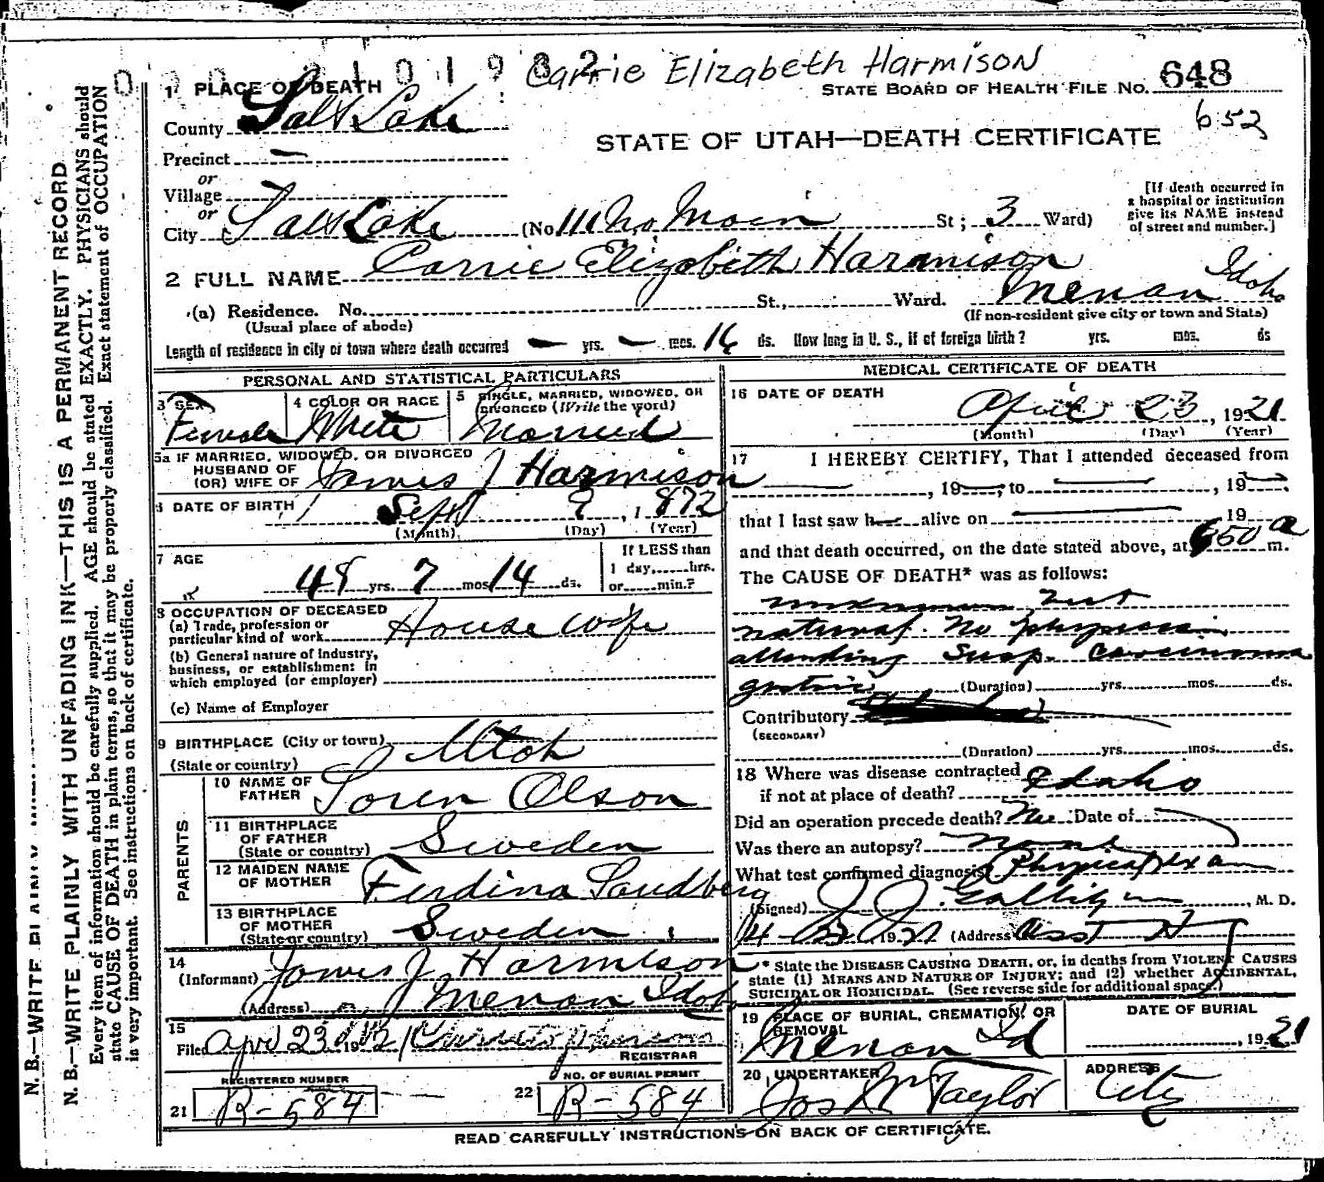 Carrie Elizabeth Harmison
1 PLACE OF DEATH
STATE BOARD OF HEALTH FILE NO. 648
652
County Salt Lake
STATE OF UTAH—DEATH CERTIFICATE
Precinct —
or
Village
or
City Salt Lake (No 111 No Main St; 3 Ward)
[If death occurred in a hospital or institution give its NAME instead of street and number.]
2 FULL NAME Carrie Elizabeth Harmison
(a) Residence. No. St., Ward. Menan Idaho
(Usual place of abode) (If non-resident give city or town and State)
Length of residence in city or town where death occurred — yrs. — mos. 16 ds. How long in U. S., if of foreign birth? yrs. mos. ds
PERSONAL AND STATISTICAL PARTICULARS
3 SEX Female
4 COLOR OR RACE White
5 SINGLE, MARRIED, WIDOWED, OR DIVORCED (Write the word) Married
5a IF MARRIED, WIDOWED, OR DIVORCED
HUSBAND OF
(OR) WIFE OF James J Harmison
6 DATE OF BIRTH Sept 9, 1872
(Month) (Day) (Year)
7 AGE 48 yrs. 7 mos 14 ds.
If LESS than
1 day,......hrs.
or......min.?
8 OCCUPATION OF DECEASED
(a) Trade, profession or
particular kind of work House wife
(b) General nature of industry,
business, or establishment in
which employed (or employer)
(c) Name of Employer
9 BIRTHPLACE (City or town)
(State or country) Utah
PARENTS
10 NAME OF
FATHER Soren Olson
11 BIRTHPLACE
OF FATHER
(State or country) Sweden
12 MAIDEN NAME
OF MOTHER Ferdina Sandberg
13 BIRTHPLACE
OF MOTHER
(State or country) Sweden
14
(Informant) James J. Harmison
(Address) Menan Idaho
15
Filed Apr 23d 1921
REGISTRAR
REGISTERED NUMBER
21 R-584
NO. OF BURIAL PERMIT
22 R-584
MEDICAL CERTIFICATE OF DEATH
16 DATE OF DEATH April 23, 1921
(Month) (Day) (Year)
17 I HEREBY CERTIFY, That I attended deceased from
, 19 , to , 19
that I last saw h alive on 19
and that death occurred, on the date stated above, at 650 a m.
The CAUSE OF DEATH* was as follows:
unknown but
natural. No physician
attending Susp. Carcinoma
gastric (Duration) yrs. mos. ds.
Contributory
(SECONDARY)
(Duration) yrs. mos. ds.
18 Where was disease contracted
if not at place of death? Idaho
Did an operation precede death? No Date of
Was there an autopsy? None
What test confirmed diagnosis Physical exam
(Signed) M. D.
4-23 1921 (Address) Asst H
* State the DISEASE CAUSING DEATH, or, in deaths from VIOLENT CAUSES
state (1) MEANS AND NATURE OF INJURY; and (2) whether ACCIDENTAL,
SUICIDAL OR HOMICIDAL. (See reverse side for additional space.)
19 PLACE OF BURIAL, CREMATION, OR
REMOVAL Menan Id
DATE OF BURIAL
, 1921
20 UNDERTAKER Jos Wm Taylor
ADDRESS City
READ CAREFULLY INSTRUCTIONS ON BACK OF CERTIFICATE.
N. B.—WRITE PLAINLY WITH UNFADING INK—THIS IS A PERMANENT RECORD
Every item of information should be carefully supplied. AGE should be stated EXACTLY. PHYSICIANS should
state CAUSE OF DEATH in plain terms, so that it may be properly classified. Exact statement of OCCUPATION
is very important. See instructions on back of certificate.